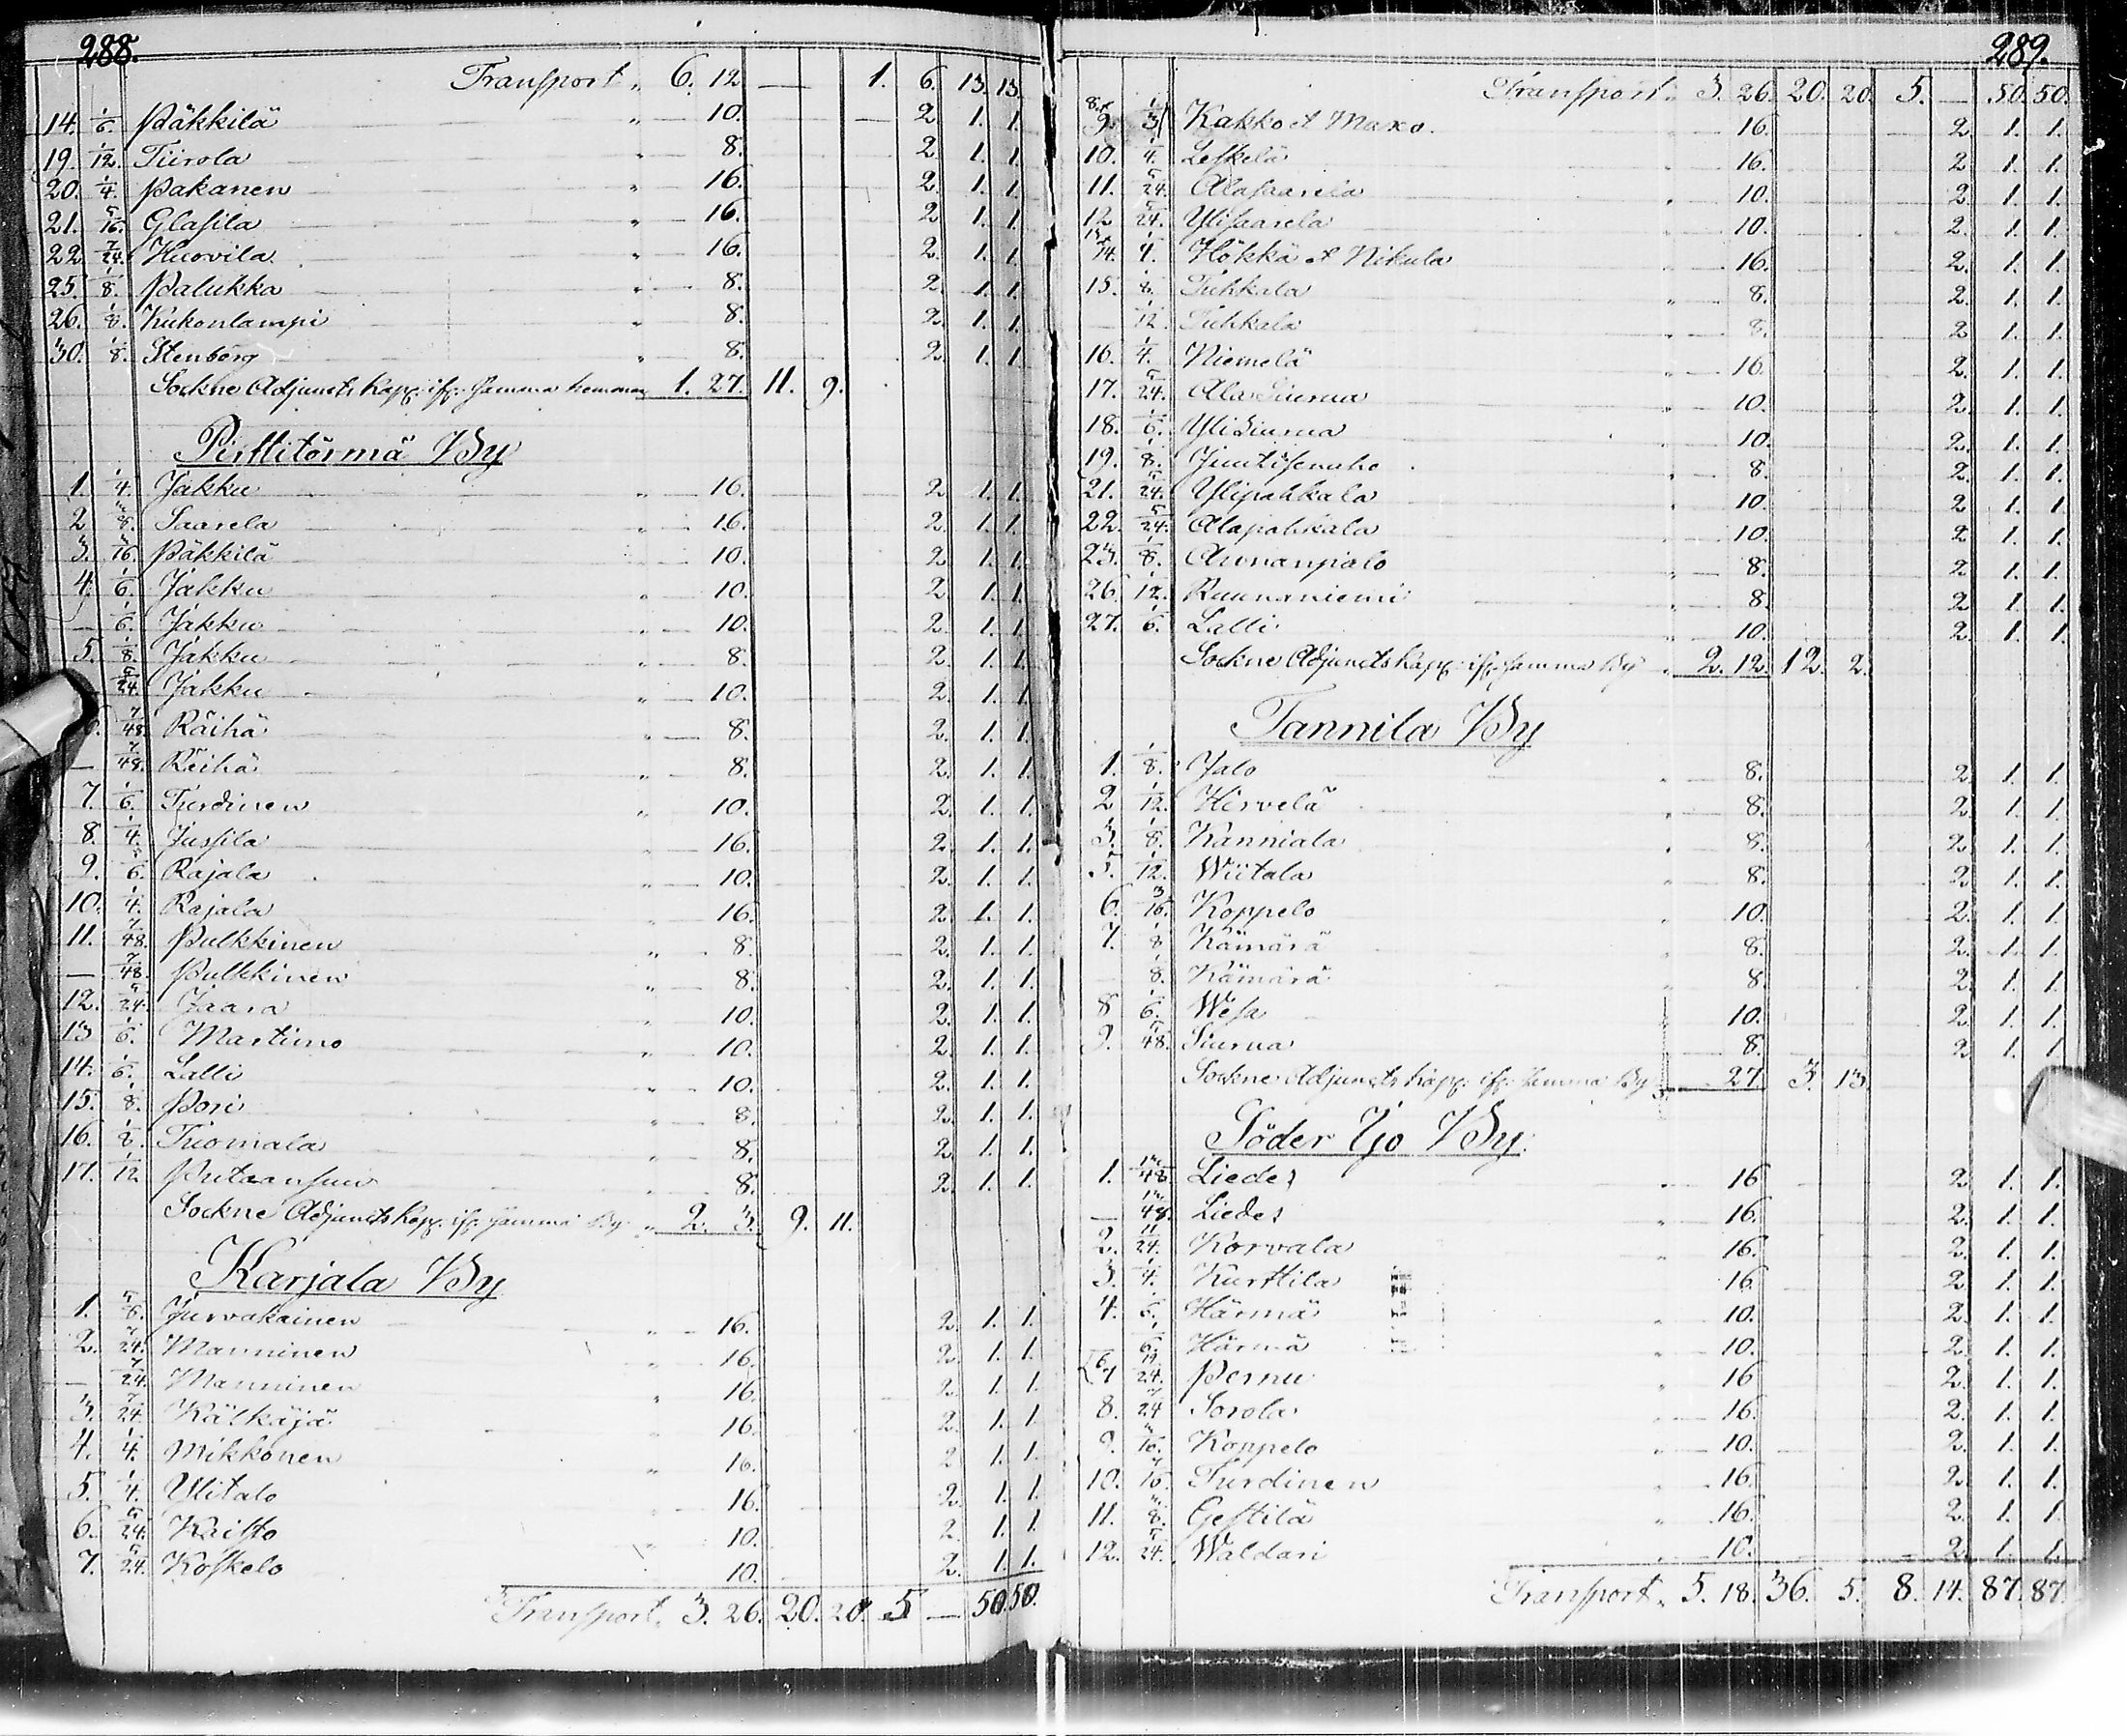 288.
Transport „ 6. 12 — 1. 6. 13. 13.
14. 1/6. Päkkilä „ 10. — 2. 1. 1.
19. 1/12. Tiirola „ 8. 2. 1. 1.
20. 1/4. Pakanen „ 16. 2. 1. 1.
21. 5/16. Glasila „ 16. 2. 1. 1.
22. 7/24. Huovila „ 16. 2. 1. 1.
25. 1/8. Palukka „ 8. 2. 1. 1.
26. 1/8. Kukonlampi „ 8. 2. 1. 1.
30. 1/8. Stenberg „ 8. 2. 1. 1.
Sockne Adjuncts Kapp: ifr. samma hemman 1. 27. 11. 9.
Pirttitörmä By
1. 1/4. Jakku „ 16. 2. 1. 1.
2. 3/8. Saarela „ 16. 2. 1. 1.
3. 3/16. Päkkilä „ 10. 2. 1. 1.
4. 1/6. Jakku „ 10. 2. 1. 1.
— 1/6. Jakku „ 10. 2. 1. 1.
5. 1/8. Jakku „ 8. 2. 1. 1.
5/24. Jakku „ 10. 2. 1. 1.
7/48. Räihä „ 8. 2. 1. 1.
— 7/48. Räihä „ 8. 2. 1. 1.
7. 1/6. Turdinen „ 10. 2. 1. 1.
8. 1/4. Jussila „ 16. 2. 1. 1.
9. 1/6. Rajala „ 10. 2. 1. 1.
10. 1/4. Rajala „ 16. 2. 1. 1.
11. 7/48. Pulkkinen „ 8. 2. 1. 1.
— 7/48. Pulkkinen „ 8. 2. 1. 1.
12. 5/24. Jaara „ 10. 2. 1. 1.
13 1/6. Martimo „ 10. 2. 1. 1.
14. 1/6. Lalli „ 10. 2. 1. 1.
15. 1/8. Pori „ 8. 2. 1. 1.
16. 1/8. Tuomala „ 8. 2. 1. 1.
17. 1/12 Putaansuu „ 8. 2. 1. 1.
Sockne Adjuncts Kapp: ifr. samma By „ 2. 3. 9. 11.
Karjala By
1. 5/6. Jurvakainen „ 16. 2. 1. 1.
2. 7/24. Manninen „ 16. 2. 1. 1.
— 7/24. Manninen „ 16. 2. 1. 1.
3. 7/24. Kälkäjä „ 16. 2. 1. 1.
4. 1/4. Mikkonen „ 16. 2 1. 1.
5. 1/4. Ylitalo „ 16. 2. 1. 1.
6. 5/24. Kaisto „ 10. 2. 1. 1.
7. 5/24. Koskelo „ 10. 2. 1. 1.
Transport „ 3. 26. 20. 20. 5 — 50. 50.
289.
Transport „ 3. 26. 20. 20. 5. — 50. 50.
8. & 9. 1/3 Kakko & Maxo. 16. 2. 1. 1.
10. 1/4. Leskelä 16. 2. 1. 1.
11. 5/24. Alasaarela 10. 2. 1. 1.
12 5/24. Ylisaarela 10. 2. 1. 1.
13 & 14. 1/4. Hökkä & Nikula 16. 2. 1. 1.
15. 1/8. Tuhkala 8. 2. 1. 1.
— 1/12. Tuhkala 8. 2. 1. 1.
16. 1/4. Niemelä 16. 2. 1. 1.
17. 5/24. Ala Siurua 10. 2. 1. 1.
18. 1/6. Yli Siurua 10. 2. 1. 1.
19. 1/8. Juutisenaho 8. 2. 1. 1.
21. 5/24. Ylipahkala 10. 2. 1. 1.
22. 5/24. Alapahkala 10. 2. 1. 1.
23. 1/8. Aronanpalo 8. 2. 1. 1.
26. 1/12. Ruunaniemi 8. 2. 1. 1.
27. 1/6. Lalli 10. 2. 1. 1.
Sockne Adjuncts Kapp: ifr. samma By „ 2. 12. 12. 2.
Tannila By
1. 1/8. Jalo 8. 2. 1. 1.
2 1/12. Hirvelä 8. 2. 1. 1.
3. 1/8. Kanniala 8. 2. 1. 1.
5. 1/12. Wiitala 8. 2. 1. 1.
6. 3/16. Koppelo 10. 2. 1. 1.
7. 1/8 Kämärä 8. 2. 1. 1.
1/8. Kämärä 8. 2. 1. 1.
8 1/6. Wesa 10. 2. 1. 1.
9. 5/48. Siurua 8. 2 1. 1.
Sockne Adjuncts Kapp: ifr. samma By „ 27 3. 13.
Söder Ijo By.
1. 13/48 Liedes 16 2. 1. 1.
— 13/48. Liedes 16. 2. 1. 1.
2. 11/24. Korvala 16. 2. 1. 1.
3. 1/4. Kurttila 16. 2. 1. 1.
4. 1/6. Härmä 10. 2. 1. 1.
1/6. Härmä 10. 2. 1. 1.
6. 7 24. Pernu 16 2. 1. 1.
8. 7/24 Sorola 16. 2. 1. 1.
9. 3/16. Koppelo 10. 2. 1. 1.
10. 7/16 Turdinen 16. 2. 1. 1.
11. 3/8. Gestilä 16. 2. 1. 1.
12. 5/24. Waldari 10. 2. 1. 1.
Transport „ 5. 18. 36. 5. 8. 14. 87. 87.